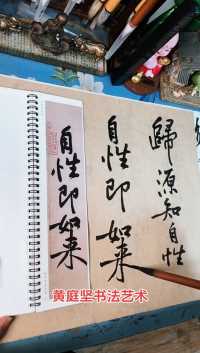 歸源知自性
自性即如来
自性即如来
黄庭坚书法艺术